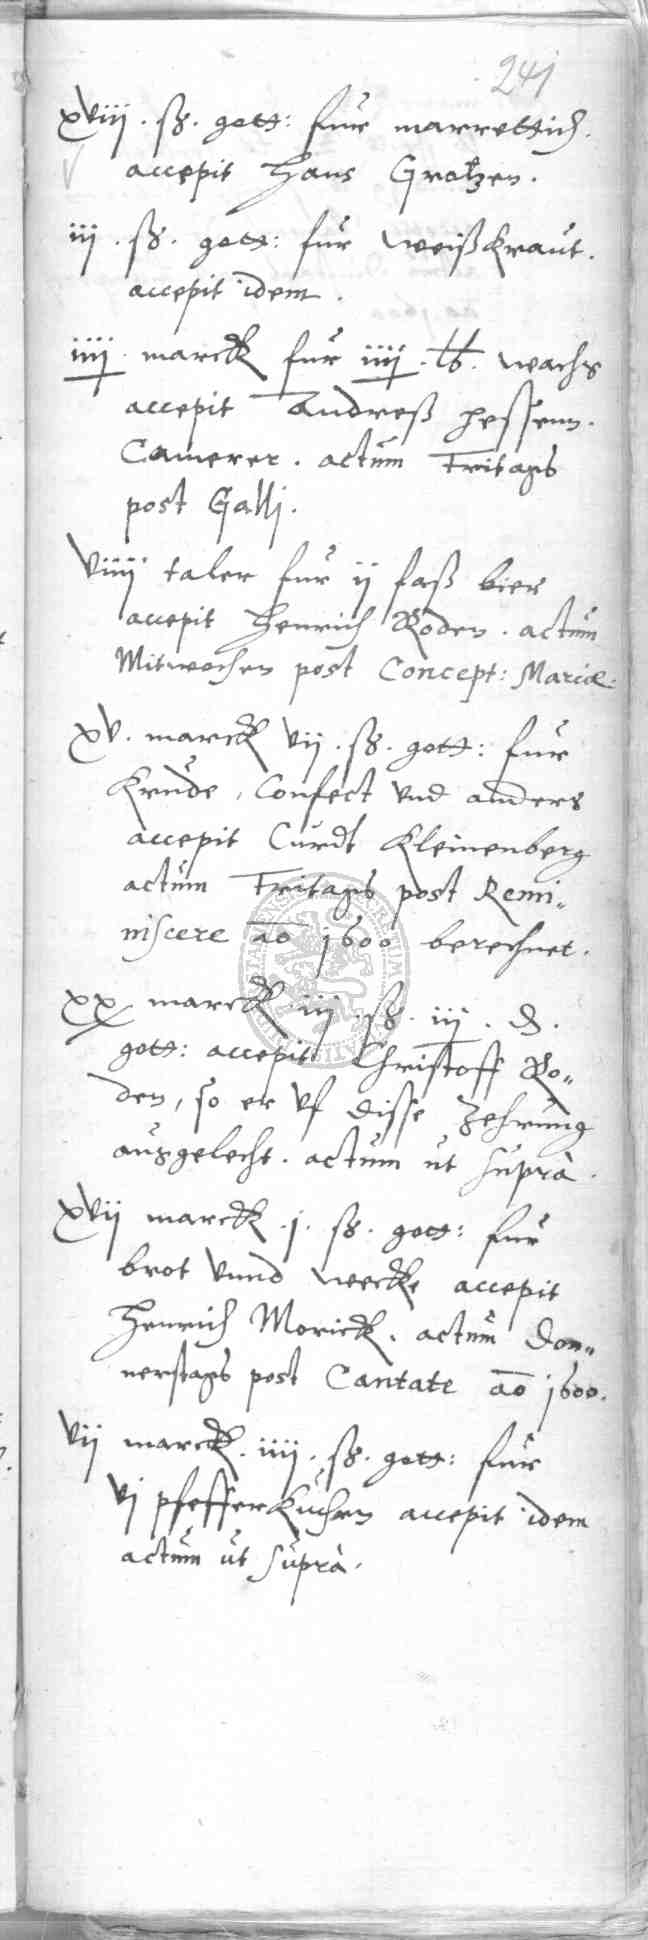 241
xviij . ß. gott: fur marrettich.
accepit Hans Grotzen.
iij . ß. gott: fur weißkraut.
accepit idem.
iiij marck fur iiij . lb. wachs
accepit Andreß Hessenn.
Camerer. actum Fritags
post Galli.
viiij taler fur ij faß bier
accepit Henrich Roden. actum
Mitwochen post Concept: Mariæ.
xv. marck vij . ß. gott: fur
Krude, Confect vnd anders
accepit Curdt Kleinenberg
actum Fritags post Remi„
niscere ao 1600 berechnet.
xx marck iij . ß. iij . d.
gott: accepit Christoff Ro„
den, so er vf disse Zehrung
außgelecht. actum ut suprà.
xvij marck .j. ß. gott: fur
brot vnnd wecke accepit
Henrich Morick. actum Don„
nerstags post Cantate ao 1600.
vij marck. iiij. ß. gott: fur
vj pfefferkuchen accepit idem
actum ut suprà.